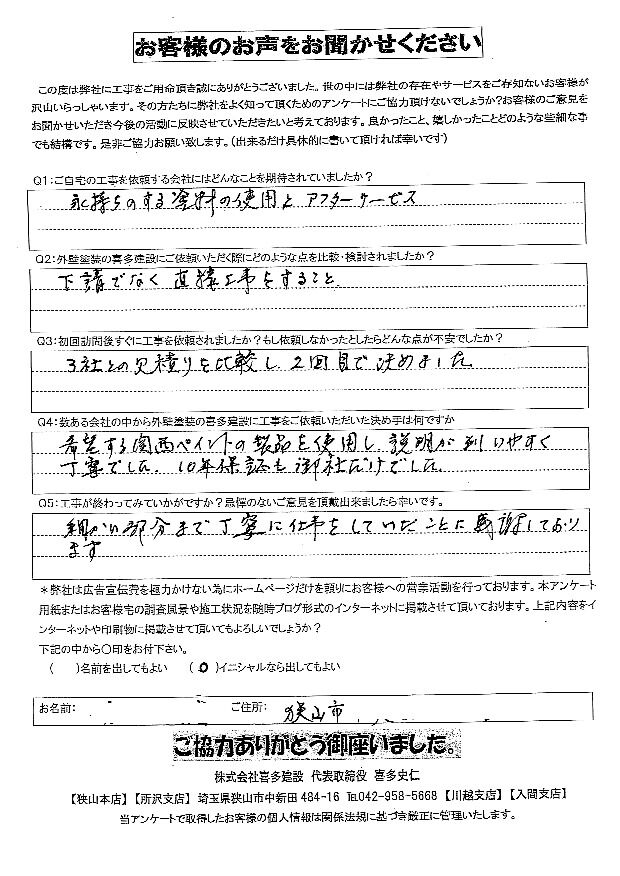 お客様のお声をお聞かせください
この度は弊社に工事をご用命頂き誠にありがとうございました。世の中には弊社の存在やサービスをご存知ないお客様が
沢山いらっしゃいます。その方たちに弊社をよく知って頂くためのアンケートにご協力頂けないでしょうか？お客様のご意見を
お聞かせいただき今後の活動に反映させていただきたいと考えております。良かったこと、嬉しかったことどのような些細な事
でも結構です。是非ご協力お願い致します。（出来るだけ具体的に書いて頂ければ幸いです）
Q1：ご自宅の工事を依頼する会社にはどんなことを期待されていましたか？
永持ちのする塗料の使用と アフターサービス
Q2：外壁塗装の喜多建設にご依頼いただく際にどのような点を比較・検討されましたか？
下請でなく 直接工事をすること
Q3：初回訪問後すぐに工事を依頼されましたか？もし依頼しなかったとしたらどんな点が不安でしたか？
3社との見積りを比較し 2回目で決めました
Q4：数ある会社の中から外壁塗装の喜多建設に工事をご依頼いただいた決め手は何ですか
希望する関西ペイントの製品を使用し 説明が判いやすく
丁寧でした。10年保証も御社だけでした
Q5：工事が終わってみていかがですか？忌憚のないご意見を頂戴出来ましたら幸いです。
細かい部分まで丁寧に仕事をしていただことに感謝しており
ます
＊弊社は広告宣伝費を極力かけない為にホームページだけを頼りにお客様への営業活動を行っております。本アンケート
用紙またはお客様宅の調査風景や施工状況を随時ブログ形式のインターネットに掲載させて頂いております。上記内容をイ
ンターネットや印刷物に掲載させて頂いてもよろしいでしょうか？
下記の中から〇印をお付下さい。
（　）名前を出してもよい　（ O ）イニシャルなら出してもよい
お名前：　ご住所：　狭山市
ご協力ありがとう御座いました。
株式会社喜多建設 代表取締役 喜多史仁
【狭山本店】【所沢支店】 埼玉県狭山市中新田 484-16 ℡042-958-5668 【川越支店】【入間支店】
当アンケートで取得したお客様の個人情報は関係法規に基づき厳正に管理いたします。